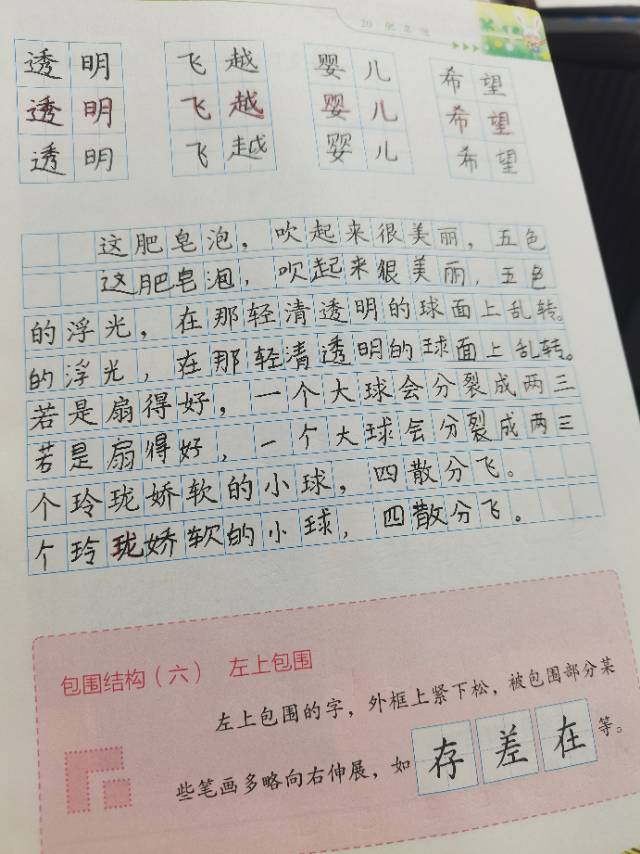 20 肥皂泡
透明 飞越 婴儿 希望
透明 飞越 婴儿 希望
透明 飞越 婴儿 希望
这肥皂泡，吹起来很美丽，五色
这肥皂泡，吹起来狠美丽，五色
的浮光，在那轻清透明的球面上乱转。
的浮光，在那轻清透明的球面上乱转。
若是扇得好，一个大球会分裂成两三
若是扇得好，一个大球会分裂成两三
个玲珑娇软的小球，四散分飞。
个玲珑娇软的小球，四散分飞。
包围结构（六） 左上包围
左上包围的字，外框上紧下松，被包围部分某
些笔画多略向右伸展，如存差在等。